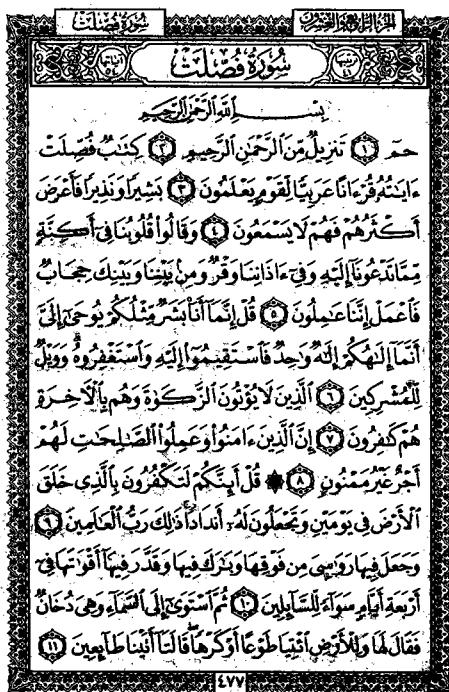 سُورَةُ فُصِّلَتْ
الجُزءُ الرَّابِعُ وَالعِشْرُونَ
ترتيبها ٤١
سُورَةُ فُصِّلَتْ
آياتها ٥٤
بِسْمِ ٱللَّهِ ٱلرَّحْمَٰنِ ٱلرَّحِيمِ
حمٓ ١ تَنزِيلٌ مِّنَ ٱلرَّحْمَٰنِ ٱلرَّحِيمِ ٢ كِتَٰبٌ فُصِّلَتْ
ءَايَٰتُهُۥ قُرْءَانًا عَرَبِيًّا لِّقَوْمٍ يَعْلَمُونَ ٣ بَشِيرًا وَنَذِيرًا فَأَعْرَضَ
أَكْثَرُهُمْ فَهُمْ لَا يَسْمَعُونَ ٤ وَقَالُوا۟ قُلُوبُنَا فِىٓ أَكِنَّةٍ
مِّمَّا تَدْعُونَآ إِلَيْهِ وَفِىٓ ءَاذَانِنَا وَقْرٌ وَمِنۢ بَيْنِنَا وَبَيْنِكَ حِجَابٌ
فَٱعْمَلْ إِنَّنَا عَٰمِلُونَ ٥ قُلْ إِنَّمَآ أَنَا۠ بَشَرٌ مِّثْلُكُمْ يُوحَىٰٓ إِلَىَّ
أَنَّمَآ إِلَٰهُكُمْ إِلَٰهٌ وَٰحِدٌ فَٱسْتَقِيمُوٓا۟ إِلَيْهِ وَٱسْتَغْفِرُوهُ ۗ وَوَيْلٌ
لِّلْمُشْرِكِينَ ٦ ٱلَّذِينَ لَا يُؤْتُونَ ٱلزَّكَوٰةَ وَهُم بِٱلْءَاخِرَةِ
هُمْ كَٰفِرُونَ ٧ إِنَّ ٱلَّذِينَ ءَامَنُوا۟ وَعَمِلُوا۟ ٱلصَّٰلِحَٰتِ لَهُمْ
أَجْرٌ غَيْرُ مَمْنُونٍ ٨ ۞ قُلْ أَئِنَّكُمْ لَتَكْفُرُونَ بِٱلَّذِى خَلَقَ
ٱلْأَرْضَ فِى يَوْمَيْنِ وَتَجْعَلُونَ لَهُۥٓ أَندَادًا ۚ ذَٰلِكَ رَبُّ ٱلْعَٰلَمِينَ ٩
وَجَعَلَ فِيهَا رَوَٰسِىَ مِن فَوْقِهَا وَبَٰرَكَ فِيهَا وَقَدَّرَ فِيهَآ أَقْوَٰتَهَا فِىٓ
أَرْبَعَةِ أَيَّامٍ سَوَآءً لِّلسَّآئِلِينَ ١٠ ثُمَّ ٱسْتَوَىٰٓ إِلَى ٱلسَّمَآءِ وَهِىَ دُخَانٌ
فَقَالَ لَهَا وَلِلْأَرْضِ ٱئْتِيَا طَوْعًا أَوْ كَرْهًا قَالَتَآ أَتَيْنَا طَآئِعِينَ ١١
٤٧٧